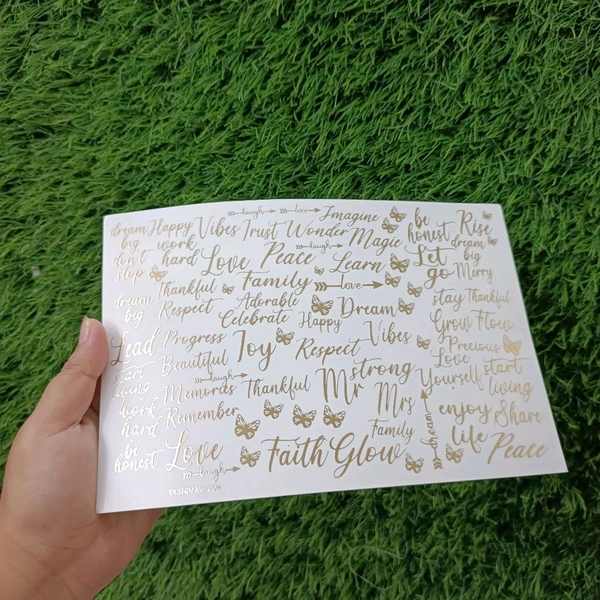 laugh love Imagine
dream big Happy Vibes Trust Wonder be honest Rise
don't stop work hard Love Peace laugh Magic Let go dream big
Learn Merry
Thankful Family love
dream big Respect Adorable Dream stay Thankful
Celebrate Happy Grow Flow
Lead Progress Joy Respect Vibes Precious
start living Beautiful Love Yourself start living
laugh strong
work hard Memories Thankful Mr Mrs enjoy Share
Remember
be honest Love Faith Glow Family dream life Peace
laugh
DESIGN No.